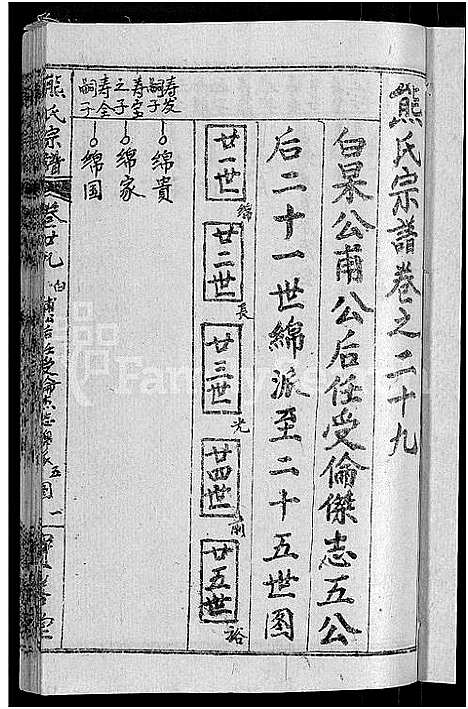 熊氏宗譜卷之二十九
白杲公甫公后任受倫傑志五公
后二十一世綿派至二十五世图
廿一世 綿
廿二世 長
廿三世 光
廿四世 前
廿五世 裕
寿发嗣子 綿貴
寿宝之子 綿家
寿全嗣子 綿国
熊氏宗譜 卷廿九